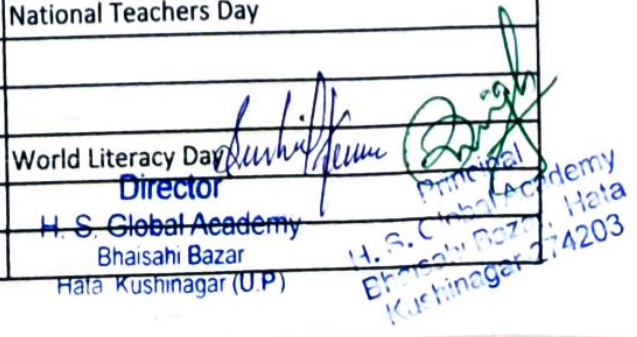 National Teachers Day
World Literacy Day
Director
H. S. Global Academy
Bhaisahi Bazar
Hata Kushinagar (U.P)
Principal
H. S. Global Academy
Bhaisahi Bazar, Hata
Kushinagar-274203